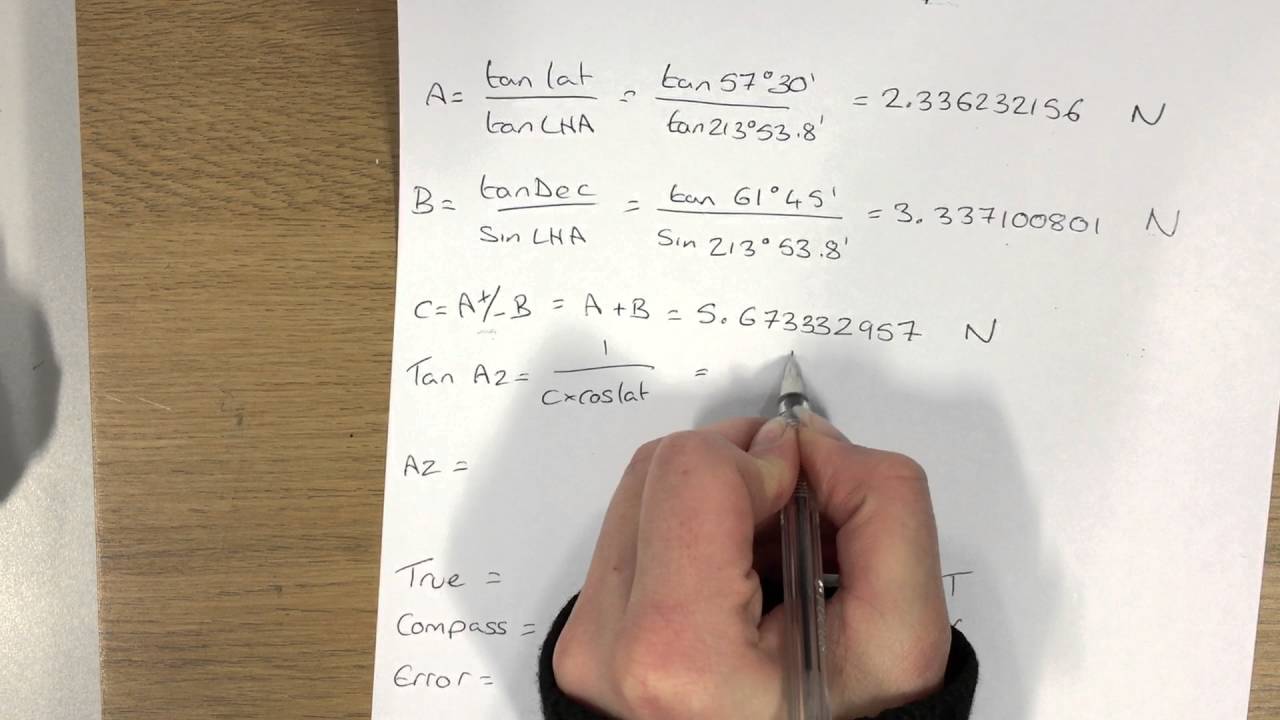 A = tan lat / tan LHA = tan 57°30' / tan 213°53.8' = 2.336232156 N
B = tan Dec / Sin LHA = tan 61°45' / Sin 213°53.8' = 3.337100801 N
C = A +/- B = A + B = 5.673332957 N
Tan Az = 1 / C × cos lat =
Az =
True = T
Compass =
Error =